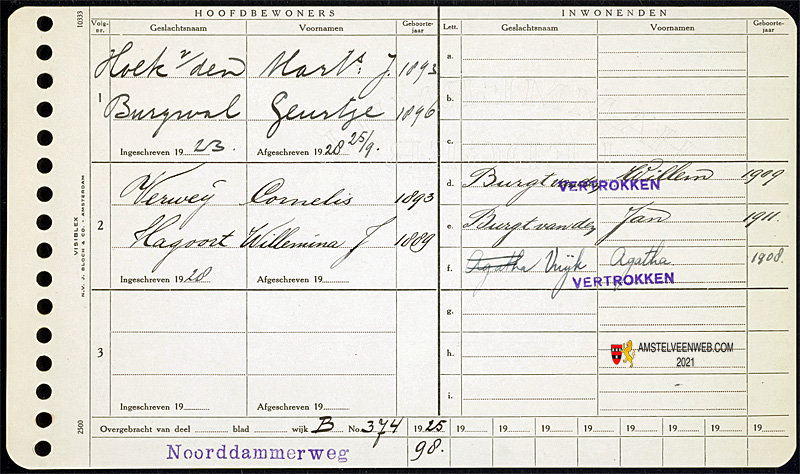 HOOFDBEWONERS
INWONENDEN
Volg-nr. Geslachtsnaam Voornamen Geboorte-jaar
Lett. Geslachtsnaam Voornamen Geboorte-jaar
1
Hoek v/den Mart s. J. 1893
Burgwal Geurtje 1896
Ingeschreven 1923. Afgeschreven 1928 25/9.
2
Verweij Cornelis 1893
Hagoort Willemina J 1889
Ingeschreven 1928 Afgeschreven 19
3
Ingeschreven 19 Afgeschreven 19
a.
b.
c.
d. Burgt van der Willem 1909
VERTROKKEN
e. Burgt van der Jan 1911.
f. Agatha Vrijk Agatha 1908.
VERTROKKEN
g.
h.
i.
AMSTELVEENWEB.COM
2021
Overgebracht van deel blad wijk B No. 374 1925 19 19 19 19 19 19 19 19
98.
Noorddammerweg
10333
VISIBLEX
N.V. J. BLOCH & CO. - AMSTERDAM
2500